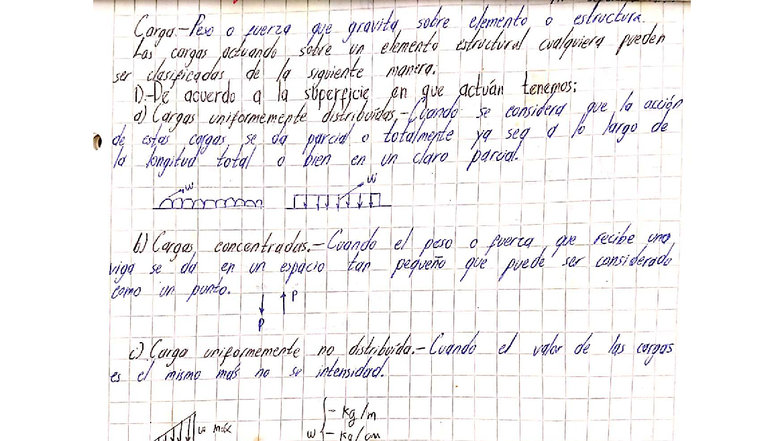 Carga.-Peso o fuerza que gravita sobre elemento o estructura.
Las cargas actuando sobre un elemento estructural cualquiera pueden
ser clasificadas de la siguiente manera.
1).-De acuerdo a la superficie en que actúan tenemos:
a) Cargas uniformemente distribuidas.-Cuando se considera que la acción
de estas cargas se da parcial o totalmente ya sea a lo largo de
la longitud total o bien en un claro parcial.
w w
b) Cargas concentradas.-Cuando el peso o fuerza que recibe una
viga se da en un espacio tan pequeño que puede ser considerado
como un punto.
P
P
c) Carga uniformemente no distribuida.-Cuando el valor de las cargas
es el mismo mas no su intensidad.
- kg/m
w - kg/cm